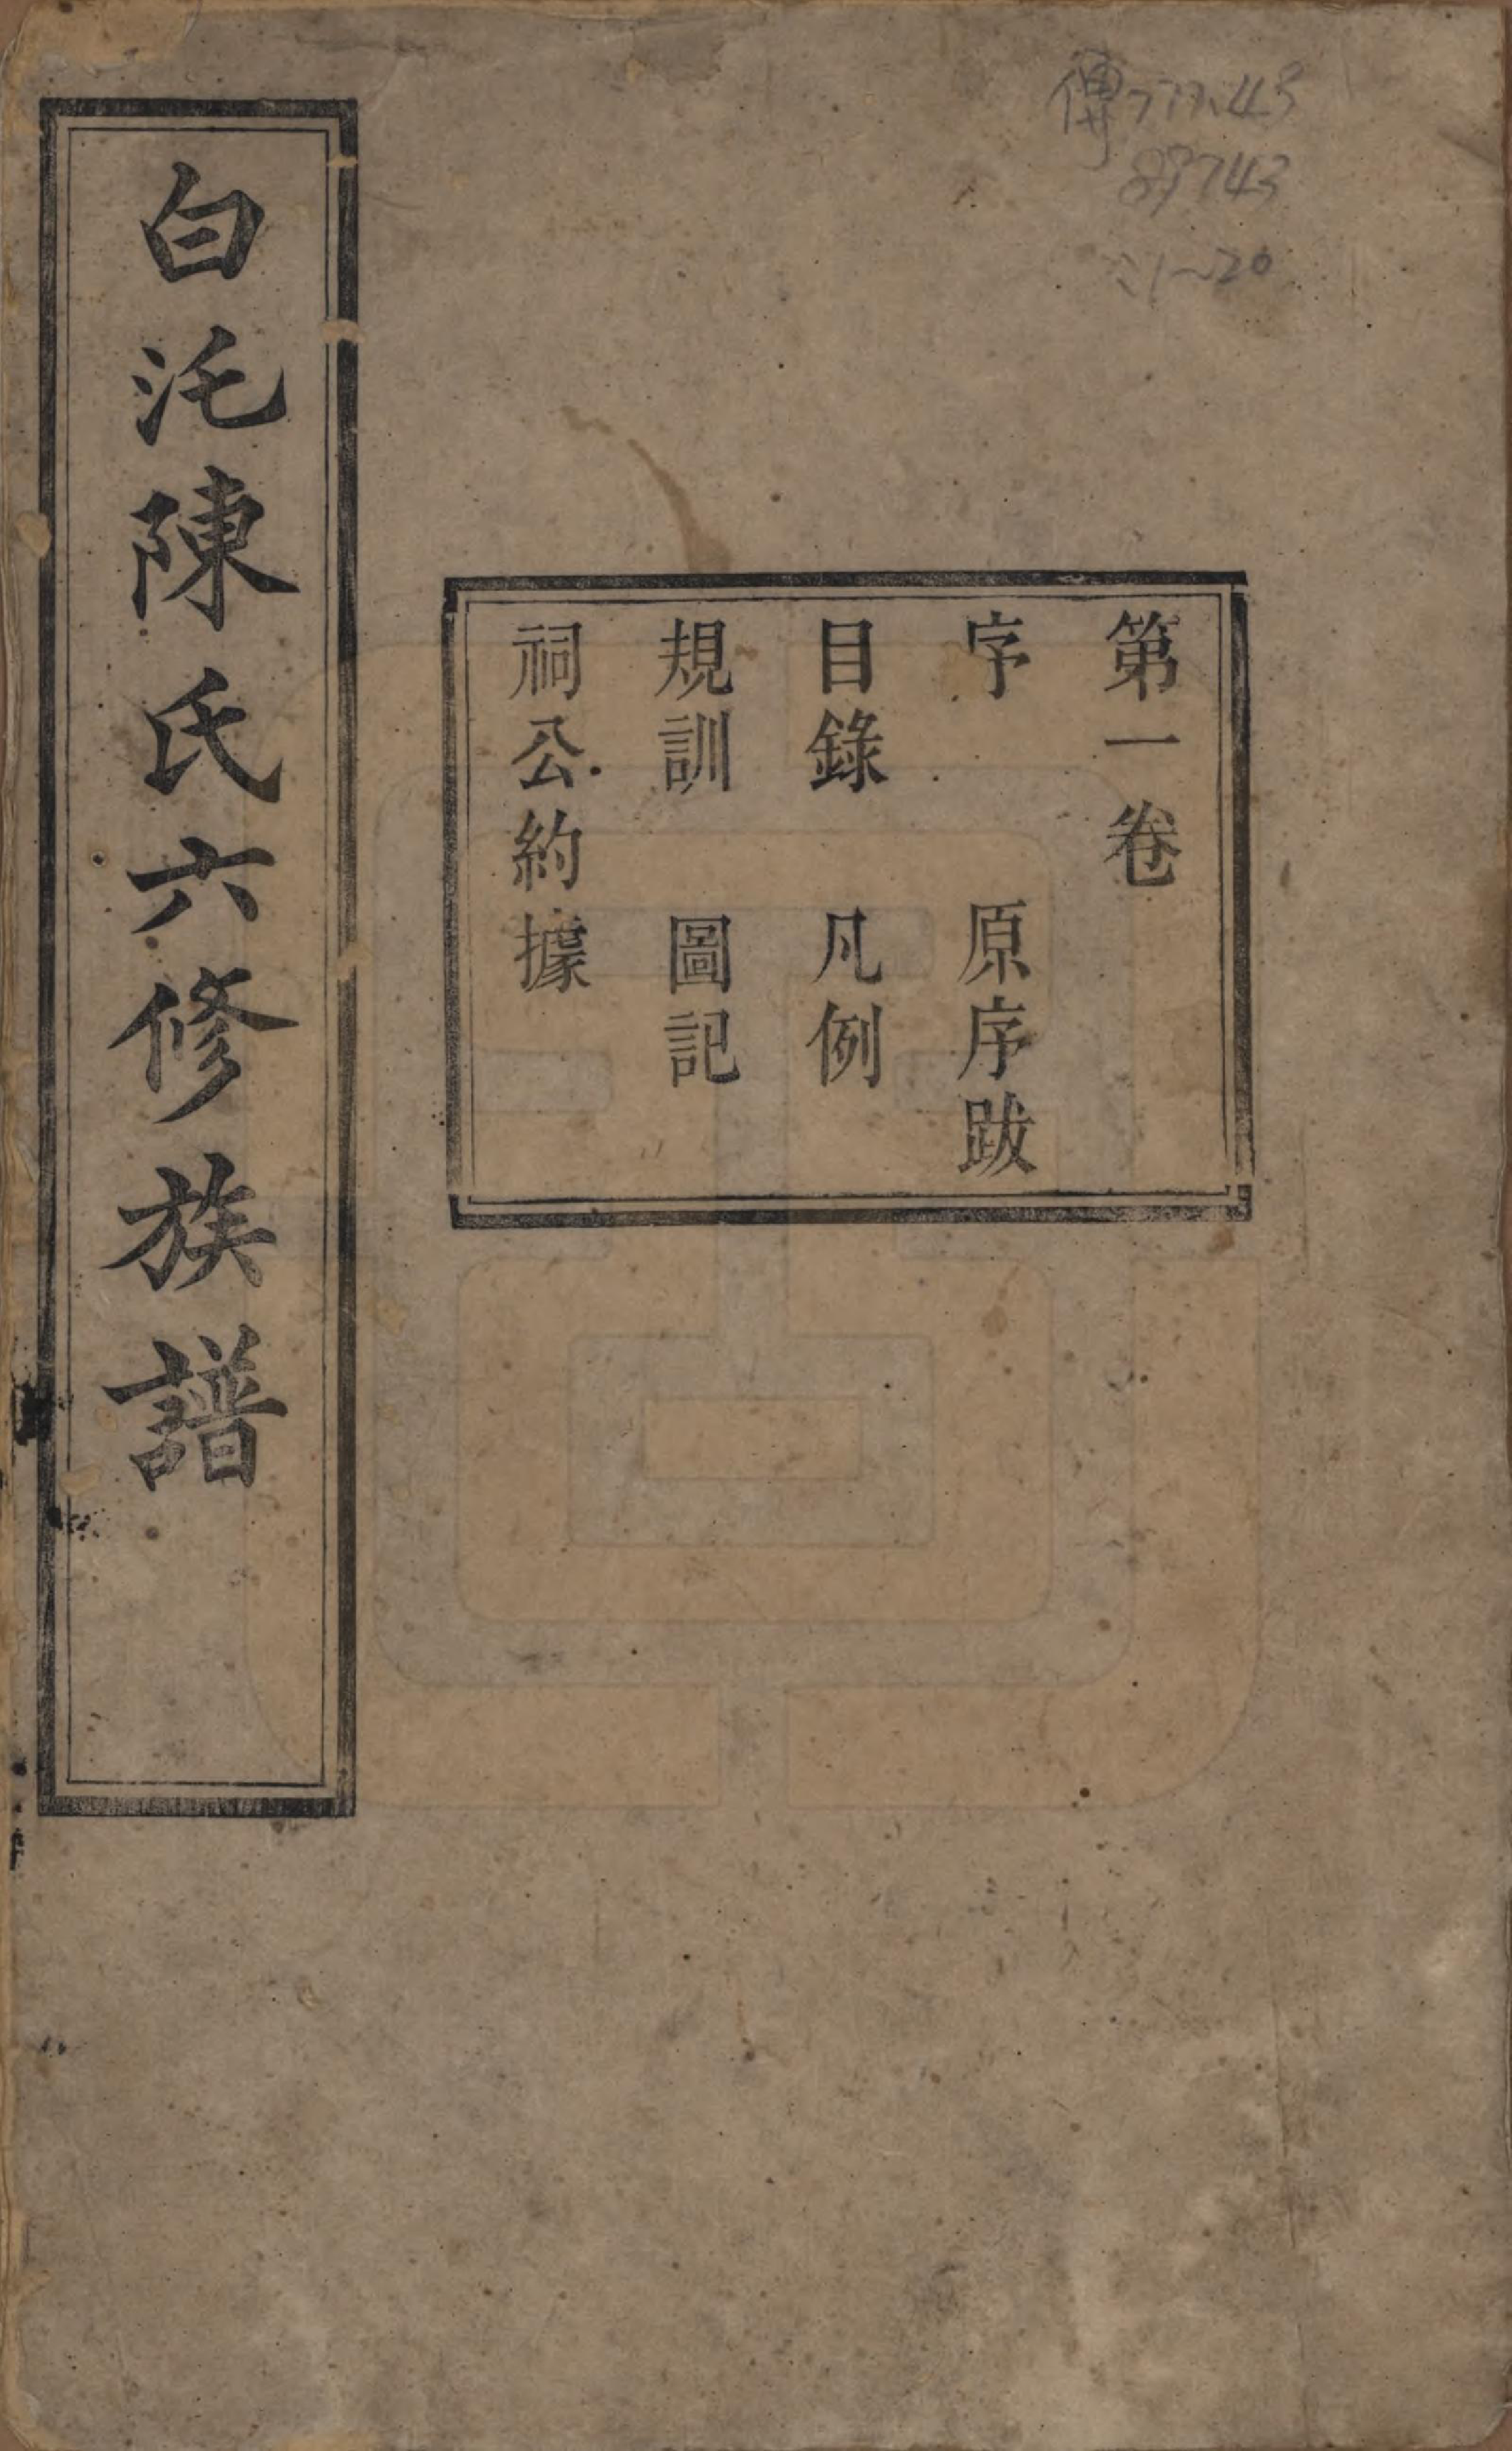 傳777.43
89743
:1~20
第一卷
序 原序跋
目錄 凡例
規訓 圖記
祠公約據
白沱陳氏六修族譜